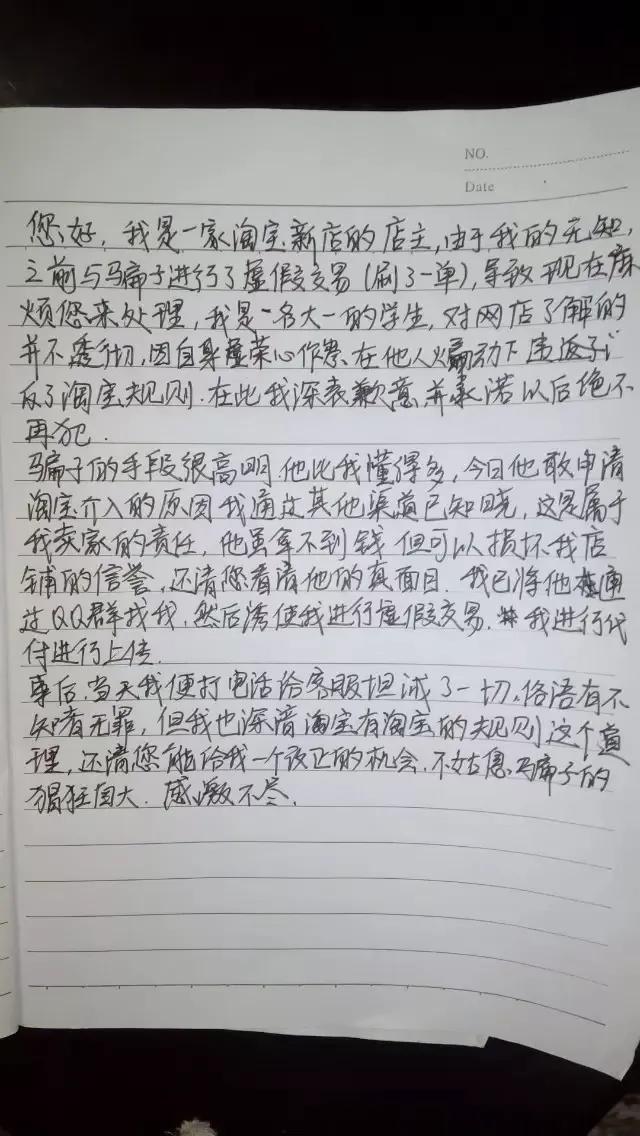 NO.
Date
您好，我是一家淘宝新店的店主，由于我的无知，
之前与骗子进行了虚假交易（刷了一单），导致现在麻
烦您来处理，我是一名大一的学生，对网店了解的
并不透彻，因自身虚荣心作祟，在他人火煽动下违
反了淘宝规则．在此我深表歉意，并承诺以后绝不
再犯．
骗子的手段很高明，他比我懂得多，今日他敢申请
淘宝介入的原因我通过其他渠道已知晓，这是属于
我卖家的责任，他虽拿不到钱 但可以损坏我店
铺的信誉，还请您看清他的真面目．我已将他通
过QQ群找我，然后诱使我进行虚假交易．我进行代
付进行上传．
事后，当天我便打电话给客服坦诚了一切．俗语有不
知者无罪，但我也深谙淘宝有淘宝的规则这个道
理，还请您能给我一个改正的机会．不姑息骗子的
猖狂自大．感激不尽．